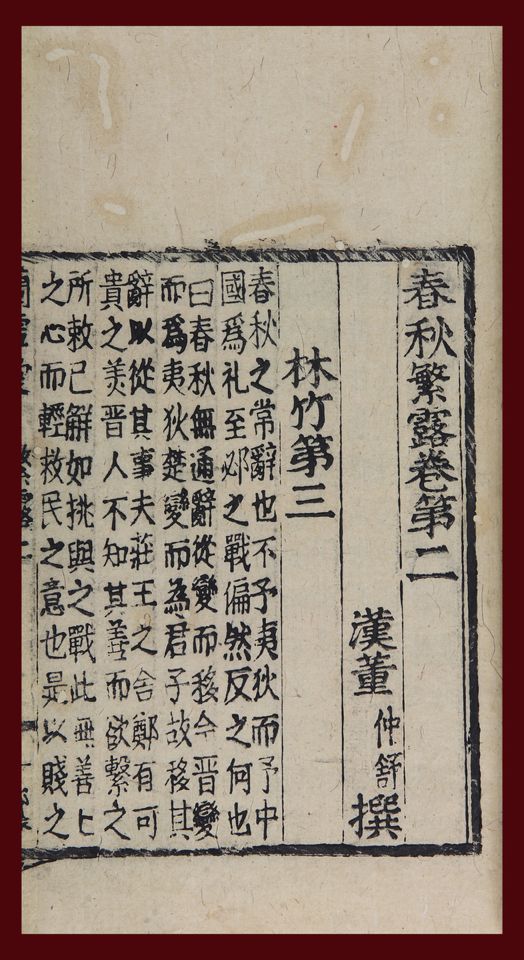 春秋繁露卷第二
漢董仲舒撰
林竹第三
春秋之常辭也不予夷狄而予中
國爲礼至邲之戰偏然反之何也
曰春秋無通辭從變而移今晋變
而爲夷狄楚變而為君子故移其
辭以從其事夫莊王之舍鄭有可
貴之美晋人不知其善而欲繫之
所敕已解如挑與之戰此無善
之心而輕救民之意也是以賤之
繁露二